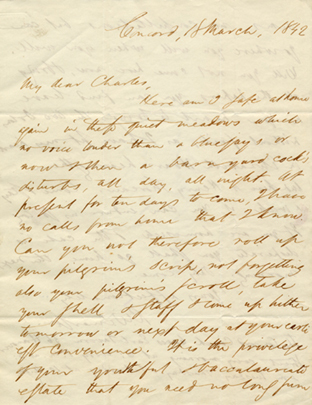 Concord, 18 March, 1842
My dear Charles,
Here am I safe at home
again in these quiet meadows which
no voice louder than a bluejay's or
now & then a barnyard cock,
disturbs, all day, all night. At
present for ten days to come, I have
no calls from home that I know
Can you not therefore roll up
your pilgrim's scrip, not forgetting
also your pilgrim's scroll, take
your shell & staff & come up hither
tomorrow or next day at your earli
est convenience. It is the privilege
of your youthful & baccalaureate
estate that you need no long